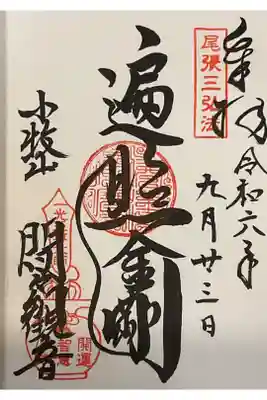 尾張三弘法
奉拝
令和六年
九月廿三日
遍照金剛
小牧山
間々観音
開運